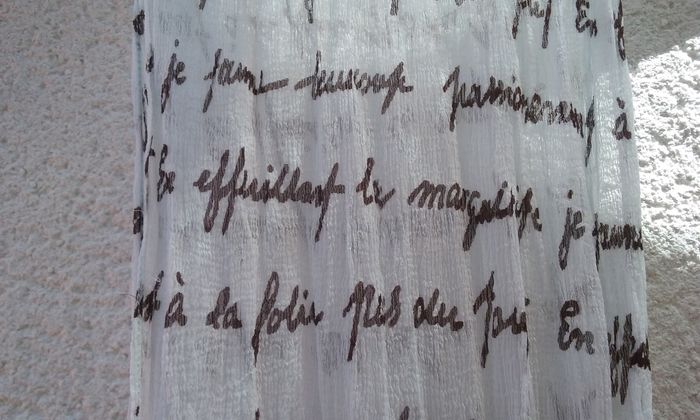 je t'aime beaucoup passionnément à
En effeuillant la marguerite je
à la folie pas du tout En